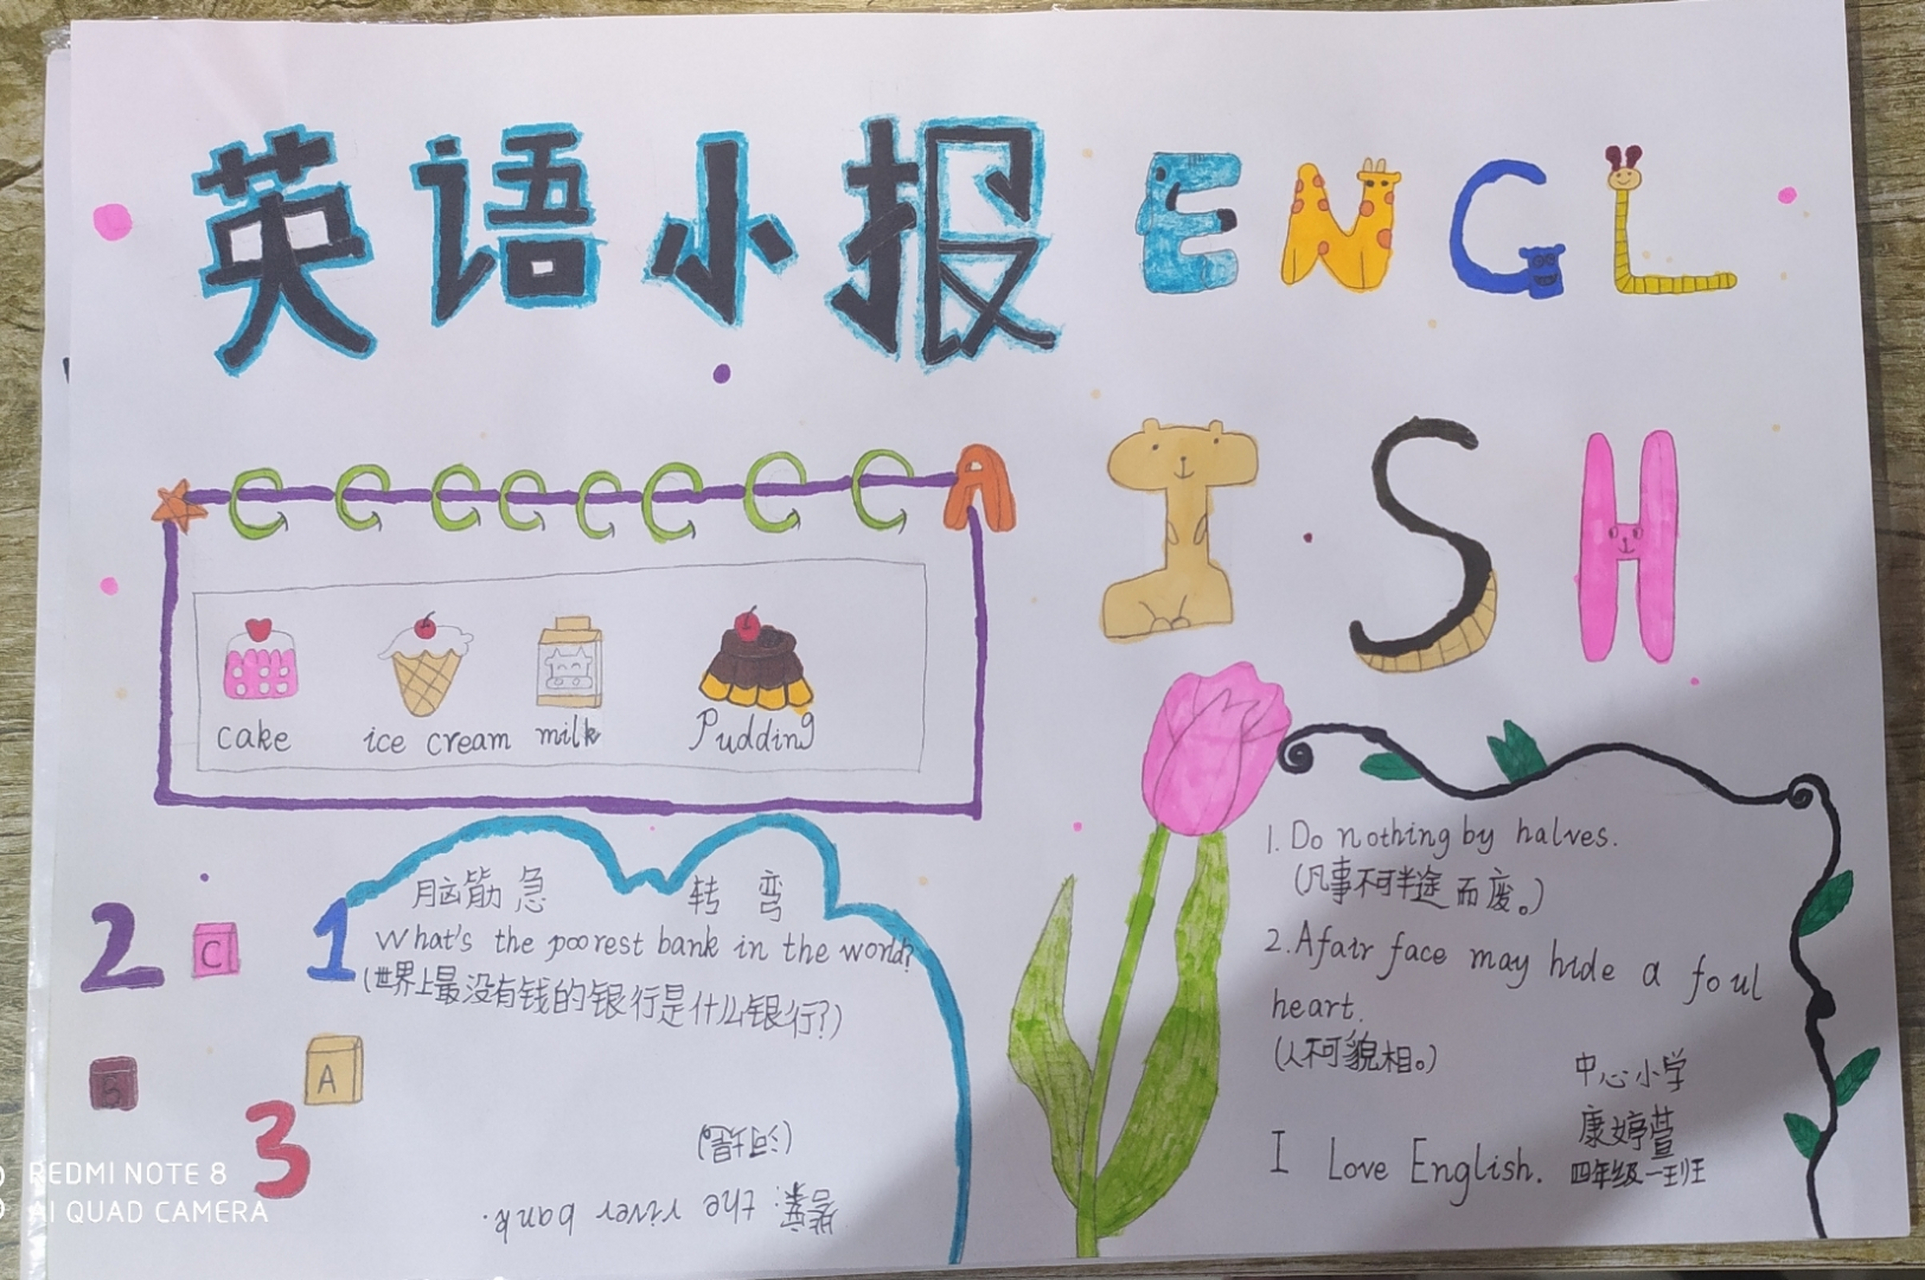 英语小报
ENGL
ISH
A
cake
ice cream
milk
Pudding
脑筋急转弯
What's the poorest bank in the world?
(世界上最没有钱的银行是什么银行?)
2
C
1
B
A
3
答案: the river bank.
(河堤)
1. Do nothing by halves.
(凡事不可半途而废。)
2. A fair face may hide a foul
heart.
(人不可貌相。)
I Love English.
中心小学
康婷萱
四年级一班
REDMI NOTE 8
AI QUAD CAMERA